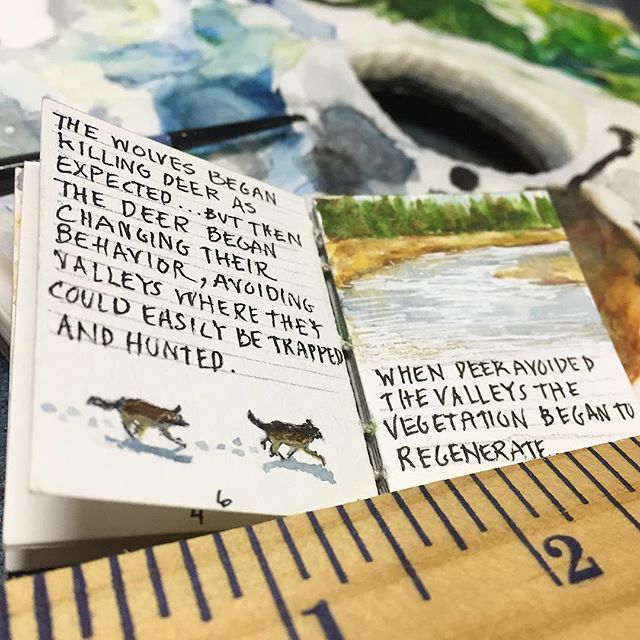 THE WOLVES BEGAN
KILLING DEER AS
EXPECTED... BUT THEN
THE DEER BEGAN
CHANGING THEIR
BEHAVIOR, AVOIDING
VALLEYS WHERE THEY
COULD EASILY BE TRAPPED
AND HUNTED.
6
4
WHEN DEER AVOIDED
THE VALLEYS THE
VEGETATION BEGAN TO
REGENERATE...
1
2